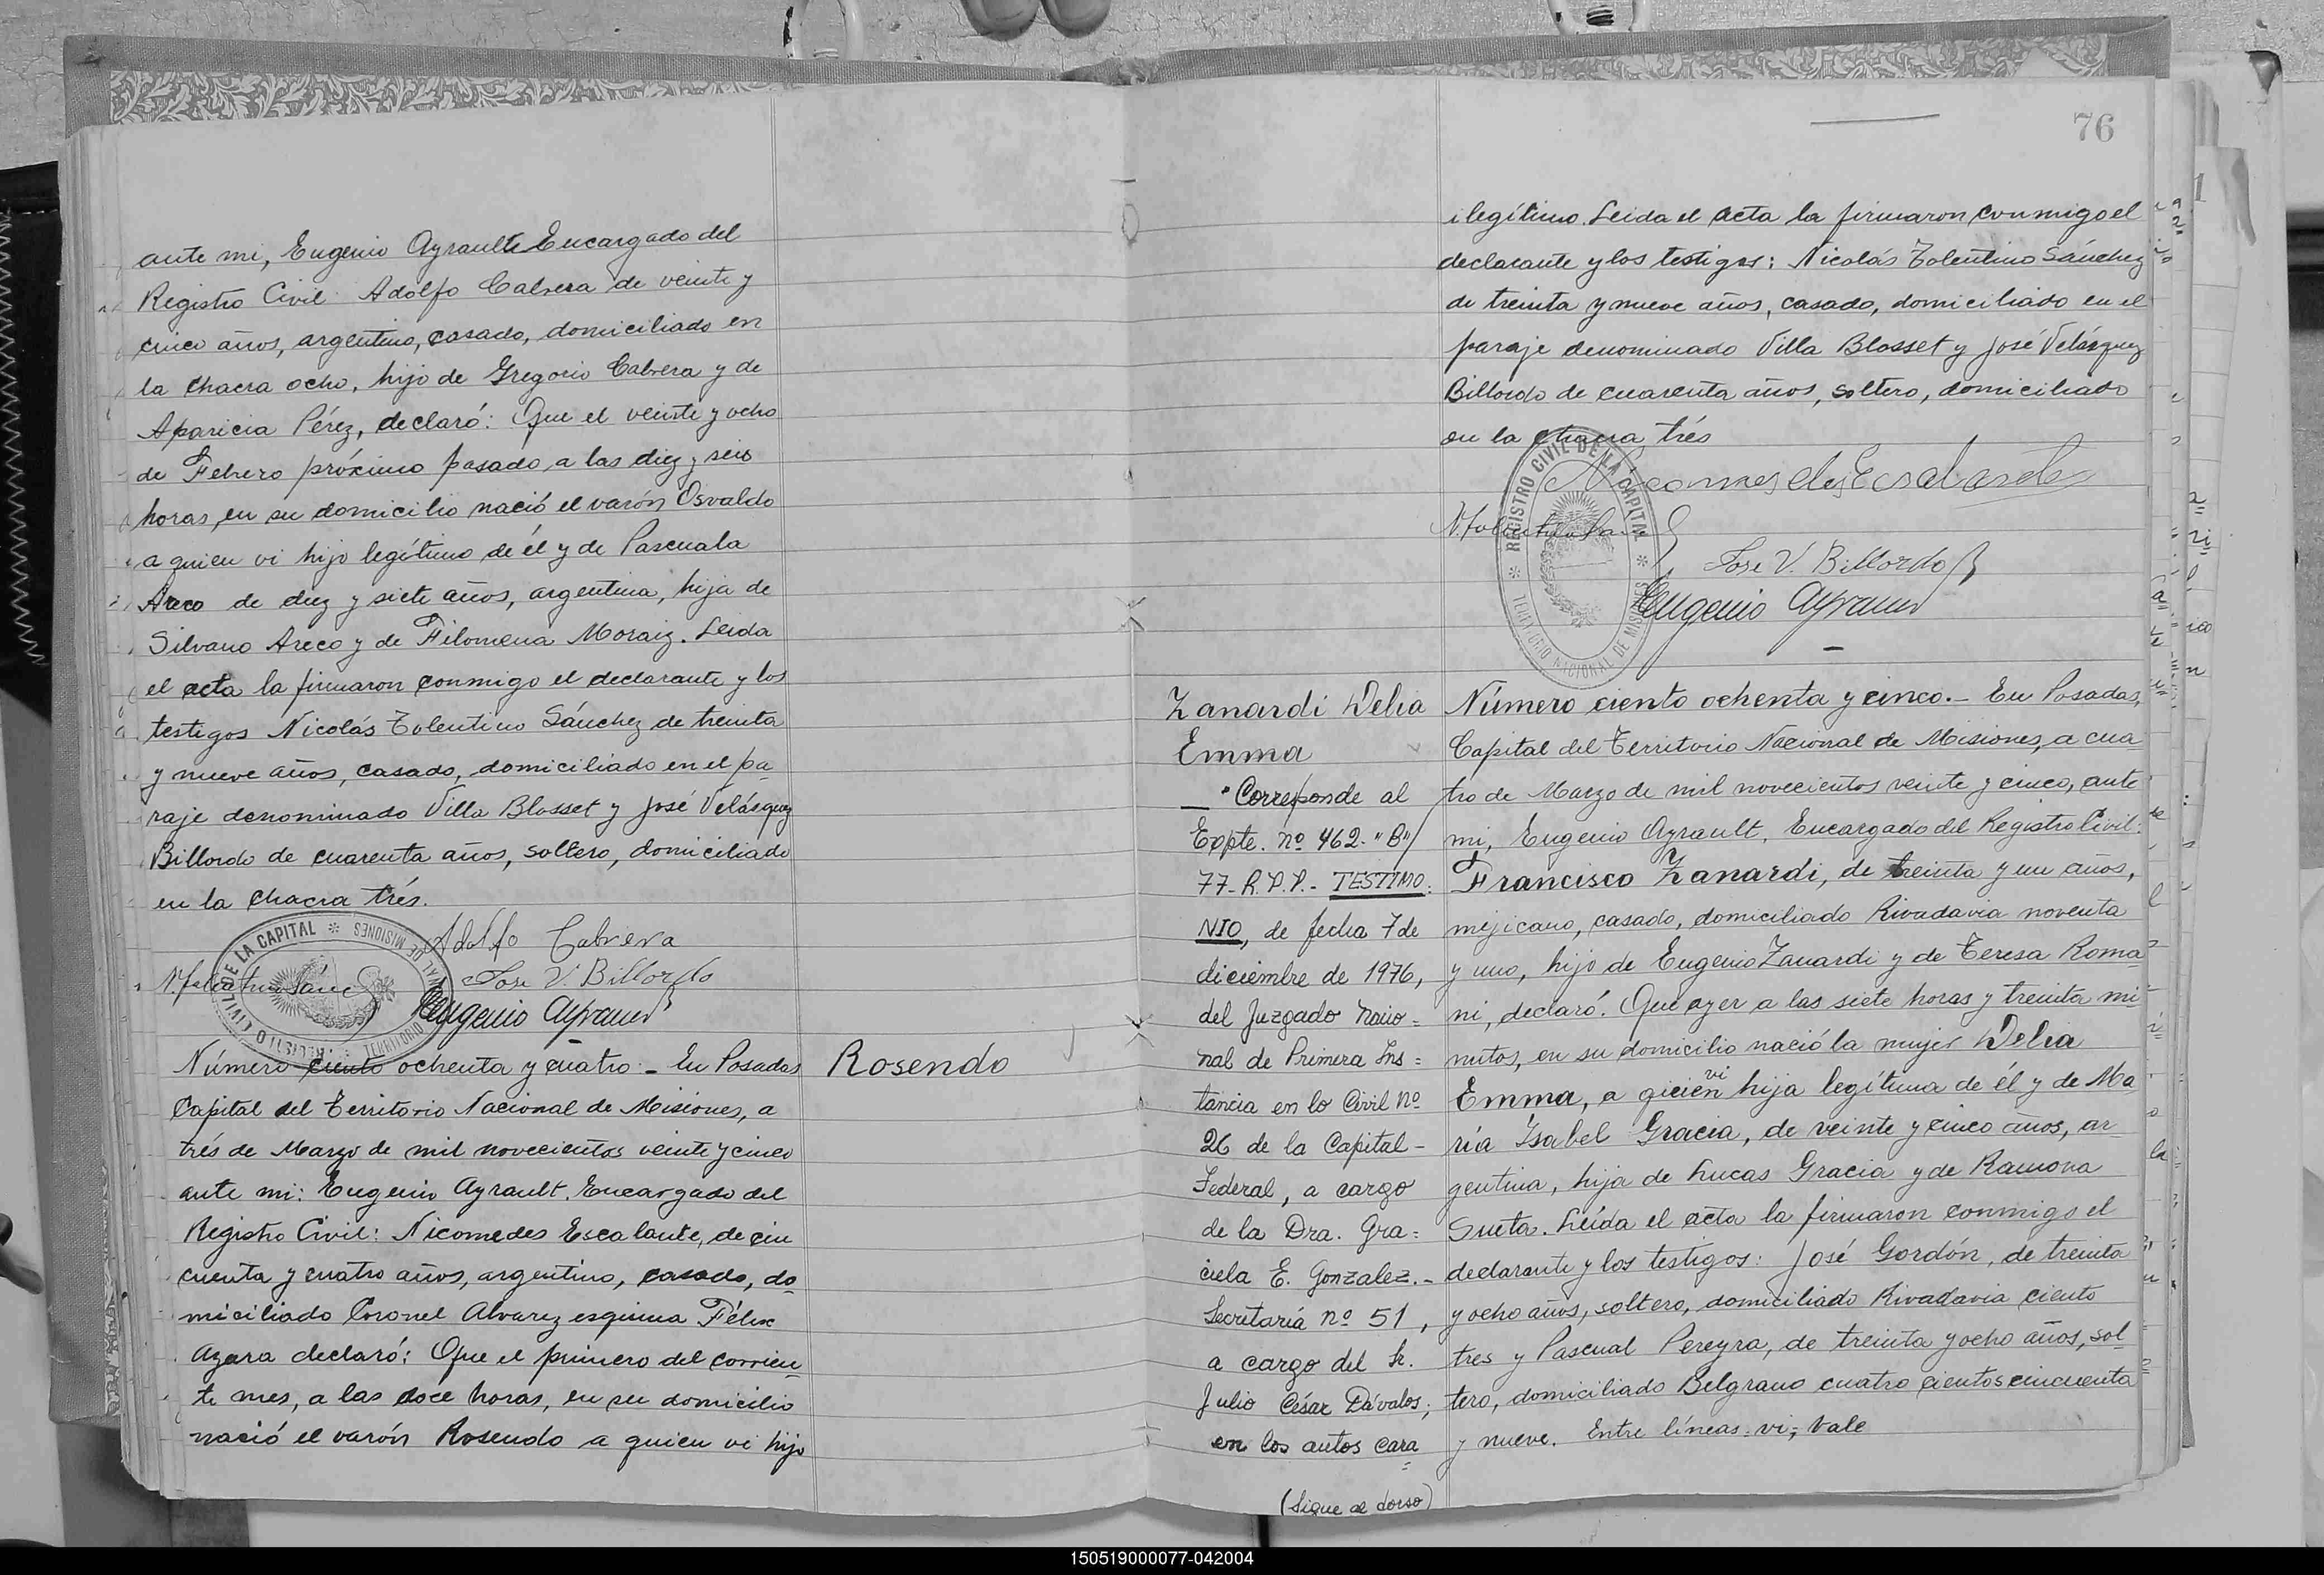 ante mi, Eugenio Ayrault Encargado del
Registro Civil: Adolfo Cabrera de veinte y
cinco años, argentino, casado, domiciliado en
la chacra ocho, hijo de Gregorio Cabrera y de
Aparicia Pérez, declaró: Que el veinte y ocho
de Febrero próximo pasado, a las diez y seis
horas, en su domicilio nació el varón Osvaldo
a quien vi hijo legítimo de él y de Pascuala
Areco de diez y siete años, argentina, hija de
Silvano Areco y de Filomena Moraiz. Leida
el acta la firmaron conmigo el declarante y los
testigos Nicolás Tolentino Sánchez de treinta
y nueve años, casado, domiciliado en el pa
raje denominado Villa Blosset y José Velásquez
Billordo de cuarenta años, soltero, domiciliado
en la chacra trés.
Adolfo Cabrera
Jose V. Billordo
Eugenio Ayrault
REGISTRO CIVIL DE LA CAPITAL * TERRITORIO NACIONAL DE MISIONES *
Número ciento ochenta y cuatro.- En Posadas
Capital del Territorio Nacional de Misiones, a
trés de Marzo de mil novecientos veinte y cinco
ante mi: Eugenio Ayrault, Encargado del
Registro Civil: Nicomedes Escalante, de cin
cuenta y cuatro años, argentino, casado, do
miciliado Coronel Alvarez esquina Félix
Azara declaró: Que el primero del corrien
te mes, a las doce horas, en su domicilio
nació el varón Rosendo a quien vi hijo
Rosendo
76
ilegítimo. Leida el acta la firmaron conmigo el
declarante y los testigos: Nicolás Tolentino Sánchez
de treinta y nueve años, casado, domiciliado en el
paraje denominado Villa Blosset y José Velásquez
Billordo de cuarenta años, soltero, domiciliado
en la chacra trés
Nicomedes Escalante
Jose V. Billordo
Eugenio Ayrault
REGISTRO CIVIL DE LA CAPITAL * TERRITORIO NACIONAL DE MISIONES *
Zanardi Delia
Emma
"Corresponde al
Expte. nº 462-"B"/
77-R.P.P.- TESTIMO
NIO, de fecha 7 de
diciembre de 1976,
del Juzgado Nacio=
nal de Primera Ins=
tancia en lo Civil nº
26 de la Capital-
Federal, a cargo
de la Dra. Gra=
ciela E. Gonzalez.-
Secretaría nº 51,
a cargo del Sr.
Julio César Dávalos;
en los autos cara
(Sigue al dorso)
Número ciento ochenta y cinco.- En Posadas,
Capital del Territorio Nacional de Misiones, a cua
tro de Marzo de mil novecientos veinte y cinco, ante
mi, Eugenio Ayrault, Encargado del Registro Civil:
Francisco Zanardi, de treinta y un años,
mejicano, casado, domiciliado Rivadavia noventa
y uno, hijo de Eugenio Zanardi y de Teresa Roma
ni, declaró: Que ayer a las siete horas y treinta mi
nutos, en su domicilio nació la mujer Delia
Emma, a quien vi hija legítima de él y de Ma
ría Isabel Gracia, de veinte y cinco años, ar
gentina, hija de Lucas Gracia y de Ramona
Sueta. Leída el acta la firmaron conmigo el
declarante y los testigos: José Gordón, de treinta
y ocho años, soltero, domiciliado Rivadavia ciento
tres y Pascual Pereyra, de treinta y ocho años, sol
tero, domiciliado Belgrano cuatro cientos cincuenta
y nueve. Entre líneas: vi; Vale
150519000077-042004